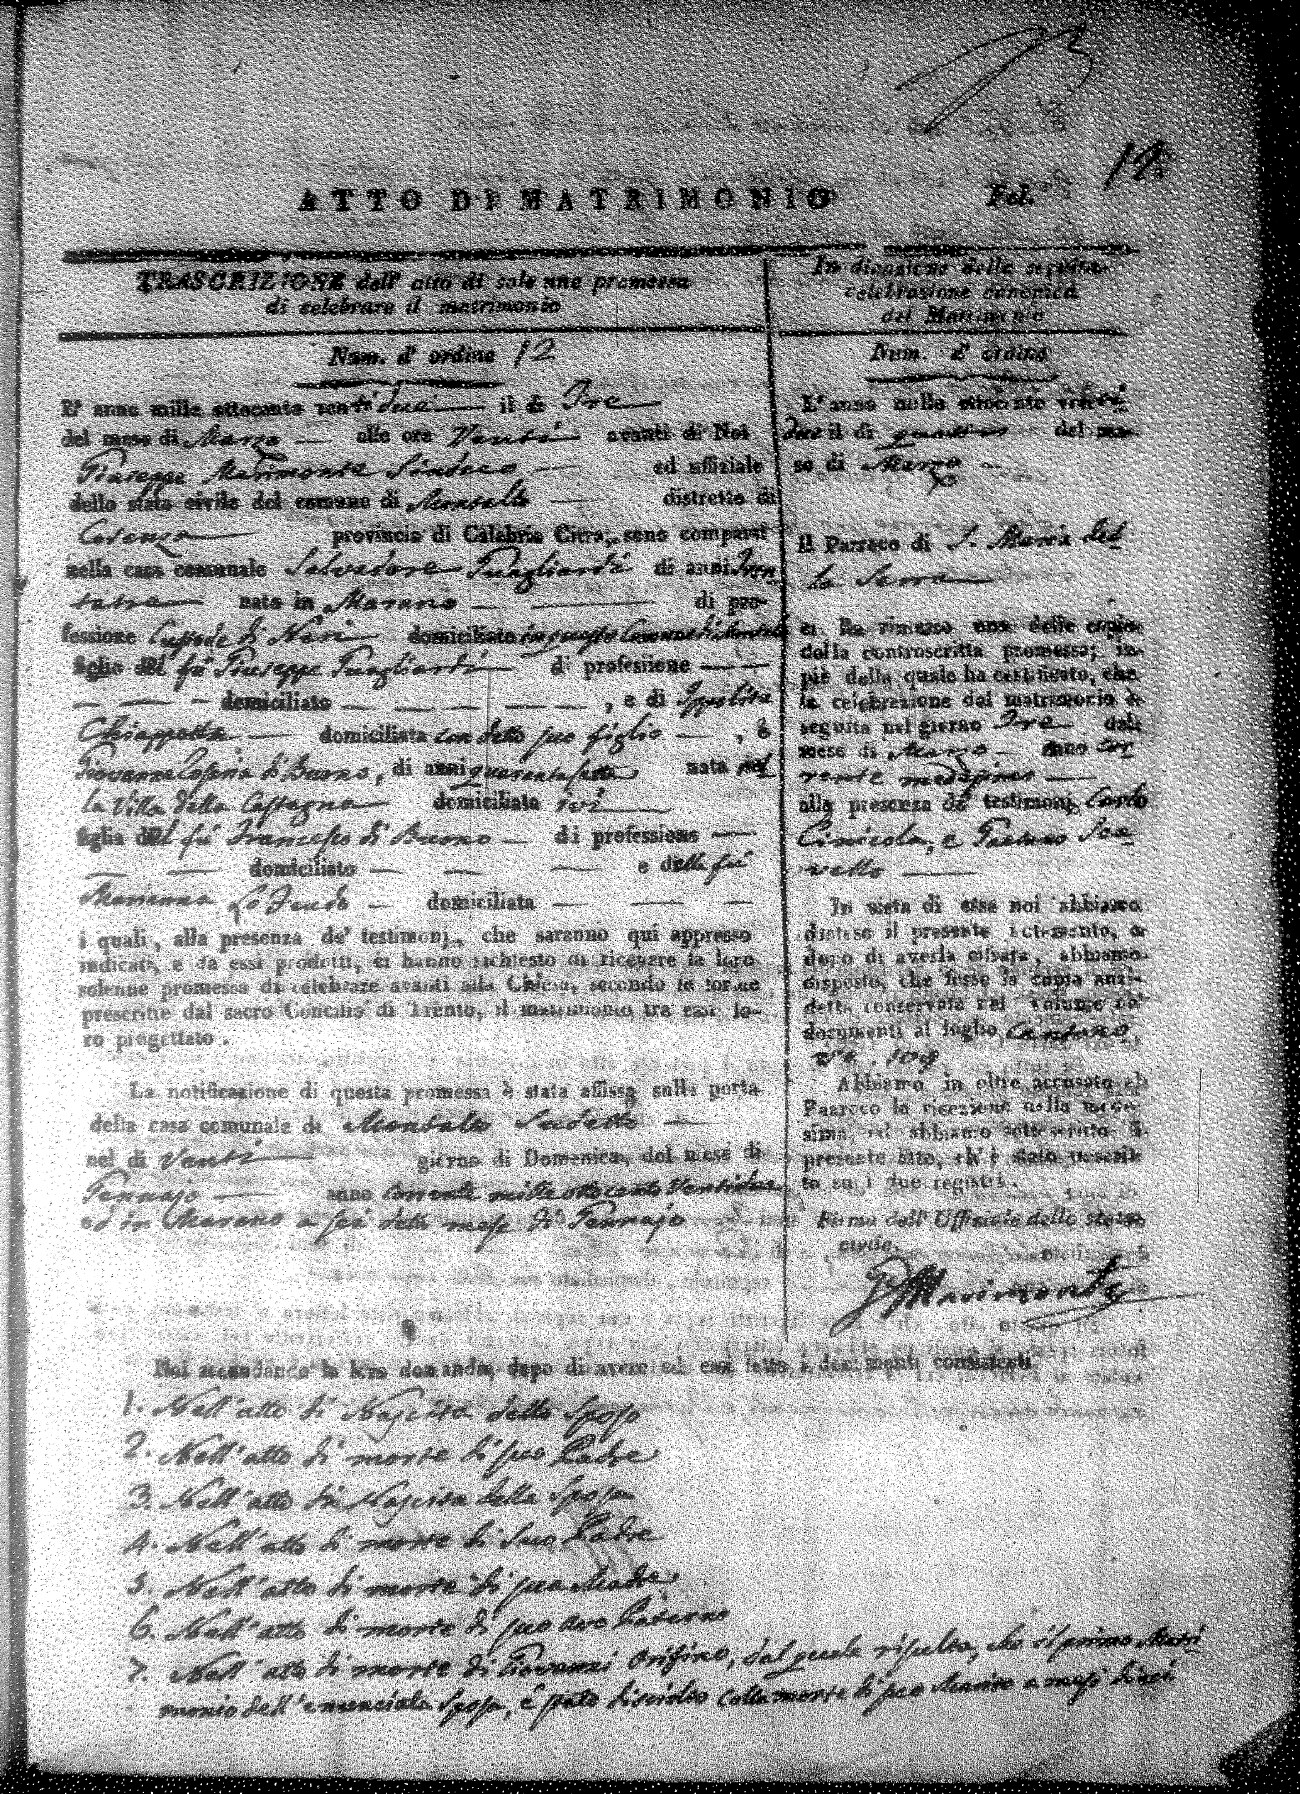 12
ATTO DI MATRIMONIO Fol.
TRASCRIZIONE dell' atto di solenne promessa
di celebrare il matrimonio
Num. d' ordine 12
L' anno mille ottocento ventidue il dì Tre
del mese di Marzo alle ore Venti avanti di Noi
Giuseppe Marimonte Sindaco ed uffiziale
dello stato civile del comune di Montalto distretto di
Cosenza provincia di Calabria Citra, sono comparsi
nella casa comunale Salvadore Pugliardi di anni Tren
tatre nato in Marano di pro-
fessione Custode di Neri domiciliato in questo Comune di Montalto
figlio del fu Giuseppe Pugliardi di professione
domiciliato , e di Ippolita
Chiappetta domiciliata con detto suo figlio , e
Giovanna di Buono, di anni quarantasette nata nel
la Villa della Castagna domiciliata ivi
figlia del fu Francesco di Buono di professione
domiciliato e della fu
Marianna Lo Feudo domiciliata
i quali, alla presenza de' testimonj, che saranno qui appresso
indicati, e da essi prodotti, ci hanno richiesto di ricevere la loro
solenne promessa di celebrare avanti alla Chiesa, secondo le forme
prescritte dal sacro Concilio di Trento, il matrimonio tra essi lo-
ro progettato.
La notificazione di questa promessa è stata affissa sulla porta
della casa comunale di Montalto Suddetto
nel dì Venti giorno di Domenica, del mese di
Gennajo anno corrente mille ottocento Ventidue
ed in Marano a sei detto mese di Gennajo
In dicazione della seguita
celebrazione canonica
del Matrimonio
Num. d' ordine
L' anno mille ottocento venti
due il dì quattro del me-
se di Marzo
Il Parroco di S. Maria del
la Serra
ci ha rimesso una delle copie
della controscritta promessa; in
piè della quale ha certificato, che
la celebrazione del matrimonio è
seguita nel giorno Tre del
mese di Marzo anno cor
rente medesimo
alla presenza de' testimonj Carlo
Cinicola, e Gaetano Sca
vello
In vista di esse noi abbiamo
disteso il presente notamento, e
dopo di averla cifrata, abbiamo
disposto, che fosse la copia anzi-
detta conservata nel volume de'
documenti al foglio Centono
ve. 109
Abbiamo in oltre accusato al
Parroco la ricezione della mede-
sima, ed abbiamo sottoscritto il
presente atto, ch'è stato inscrit-
to su i due registri.
Firma dell' Uffiziale dello stato
civile.
G. Marimonte
Noi secondando la loro domanda, dopo di avere ad essi letto i documenti consistenti
1. Nell' atto di Nascita dello Sposo
2. Nell' atto di morte di suo Padre
3. Nell' atto di Nascita della Sposa
4. Nell' atto di morte di suo Padre
5. Nell' atto di morte di sua Madre
6. Nell' atto di morte di suo avo Paterno
7. Nell' atto di morte di Giovanni Orifino, dal quale risulta, che il primo Matri
monio dell' enunciata Sposa, è stato disciolto colla morte di suo Marito a mesi dieci